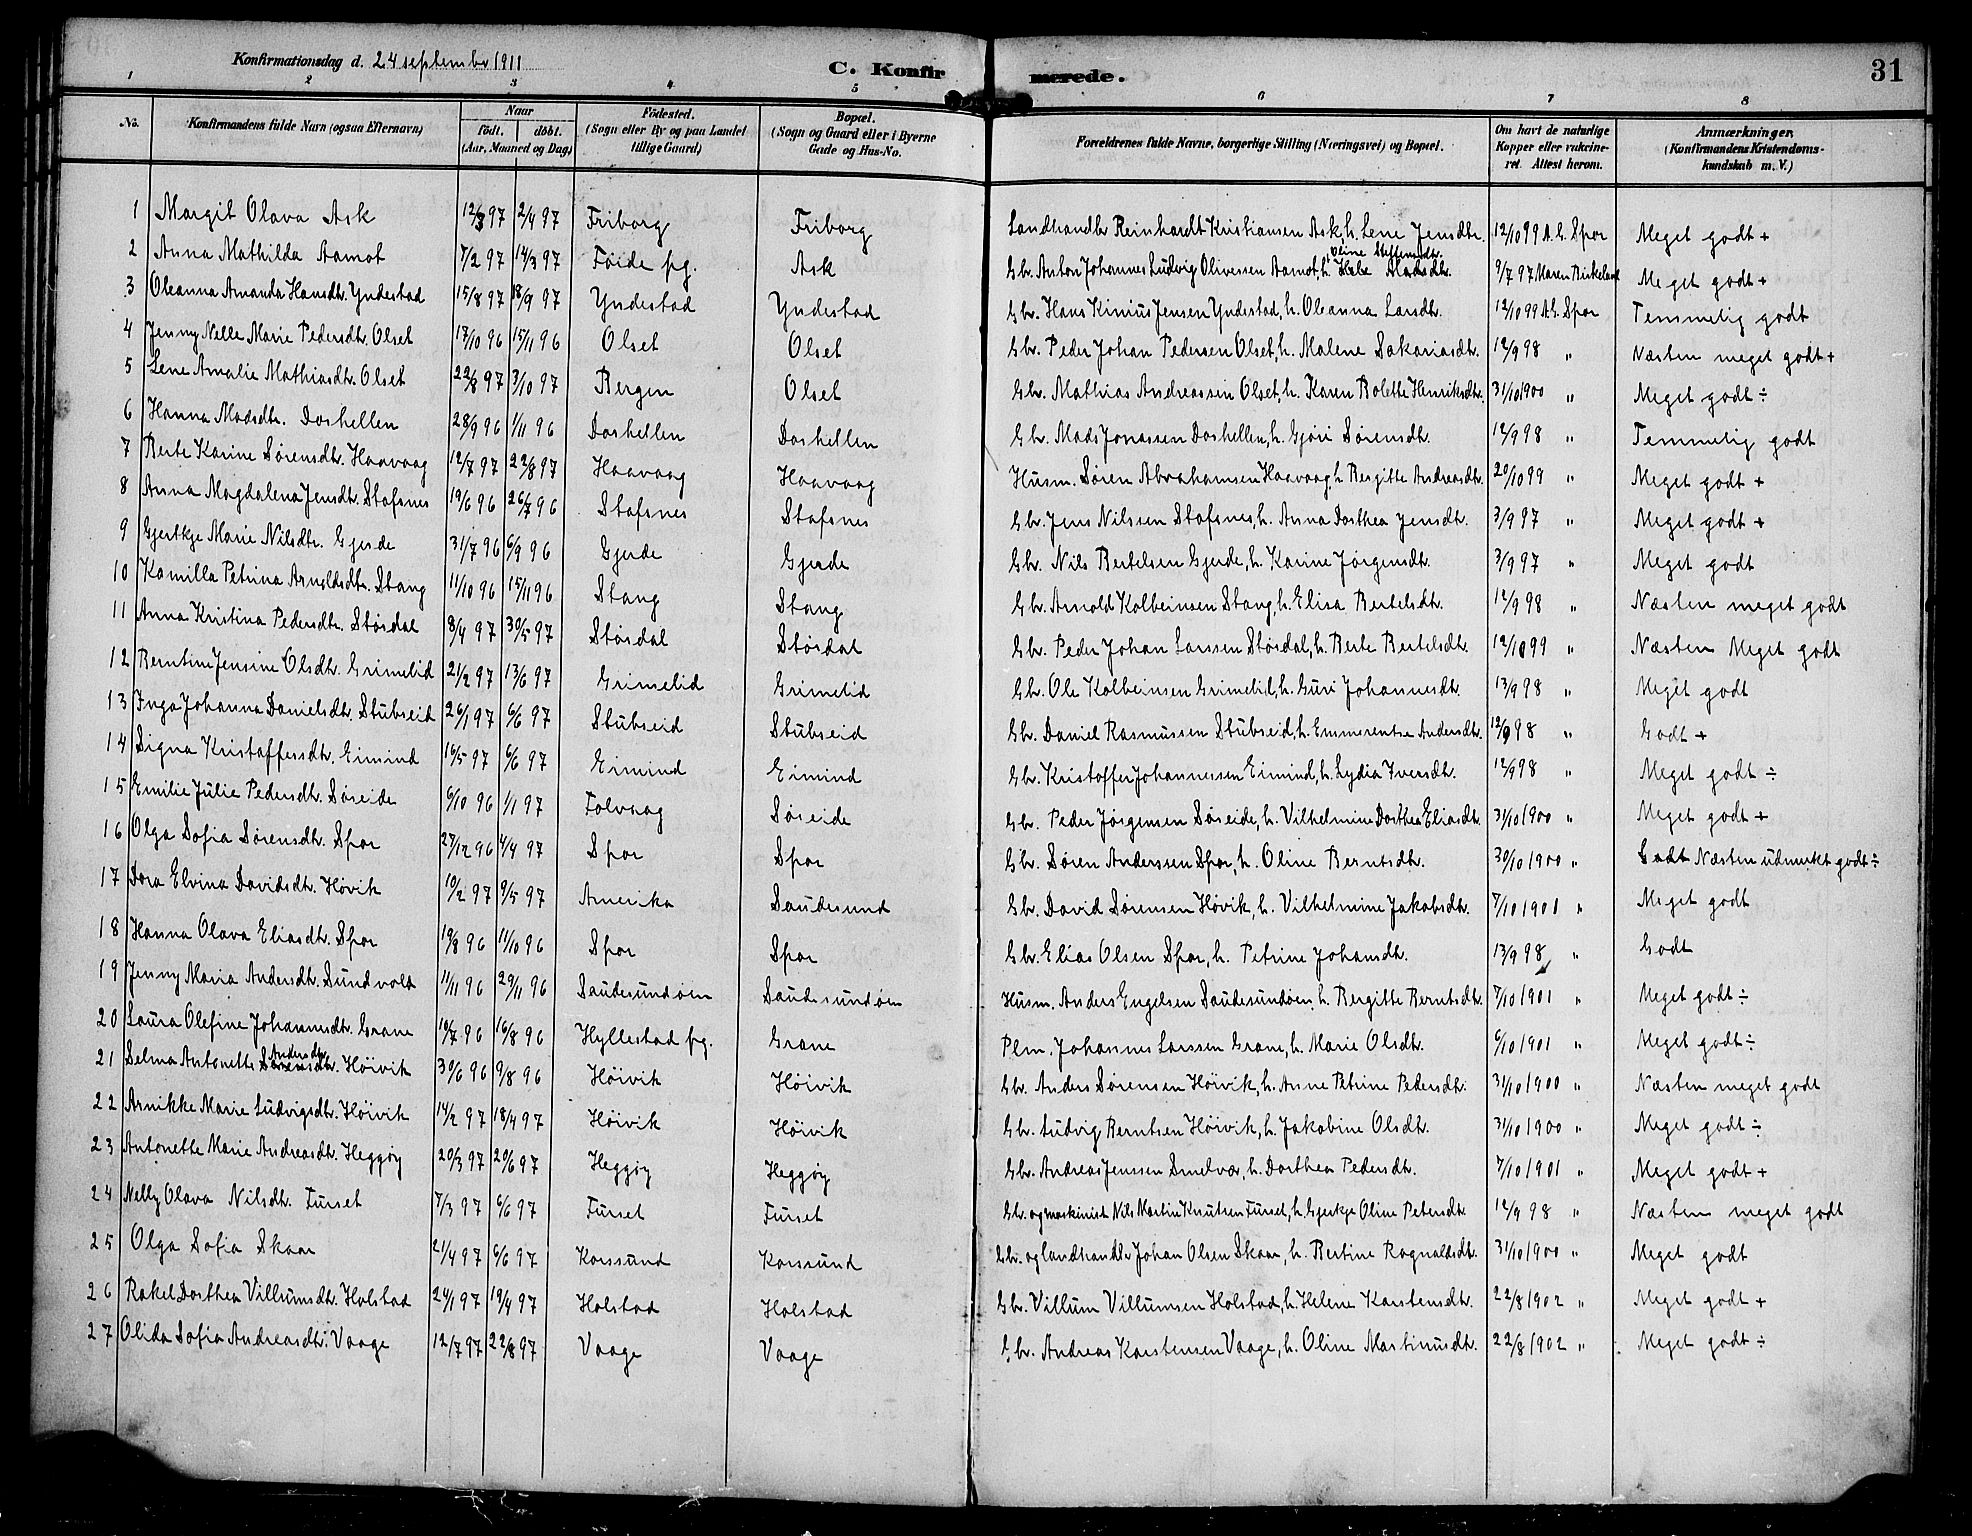 Konfirmationsdag d. 24 september 1911
C. Konfirmerede.
31
1 2 3 4 5 6 7 8
No.
Konfirmandens fulde Navn (ogsaa Efternavn)
Naar
födt. döbt.
(Aar, Maaned og Dag)
Födested.
(Sogn eller By og paa Landet
tillige Gaard)
Bopæl.
(Sogn og Gaard eller i Byerne
Gade og Hus-No.
Forældrenes fulde Navne, borgerlige Stilling (Næringsvei) og Bopæl.
Om havt de naturlige
Kopper eller vaccine-
ret. Attest herom.
Anmærkninger.
(Konfirmandens Kristendoms-
kundskab m. V.)
1 Margit Olava Ask 12/3 97 2/4 97 Friborg Friborg Landhandler Reinhardt Kristiansen Ask, h. Lene Jensdtr. 12/10 99 A. G. Spor Meget godt +
2 Anna Mathilda Aamot 7/2 97 14/3 97 Föide pg. Ask Gbr. Anton Johannes Ludvig Olivessen Aamot, h. Oline Steffensdtr. 9/7 97 Maren Birkeland Meget godt +
3 Oleanna Amanda Hansdtr. Yndestad 15/8 97 18/9 97 Yndestad Yndestad Gbr. Hans Kinius Jensen Yndestad, h. Oleanna Larsdtr. 12/10 99 A. G. Spor Temmelig godt
4 Jenny Nelle Marie Pedersdtr. Olset 17/10 96 15/11 96 Olset Olset Gbr. Peder Johan Pedersen Olset, h. Malene Sakariasdtr. 12/9 98 " Næsten meget godt +
5 Lene Amalie Mathiasdtr. Olset 22/8 97 3/10 97 Bergen Olset Gbr. Mathias Andreassen Olset, h. Karen Bolette Henriksdtr. 31/10 1900 " Meget godt ÷
6 Hanna Madsdtr. Doshellen 28/9 96 1/11 96 Doshellen Doshellen Gbr. Mads Jonassen Doshellen, h. Gjöri Sørensdtr. 12/9 98 " Temmelig godt
7 Berte Karine Sørensdtr. Haavaag 12/7 97 22/8 97 Haavaag Haavaag Husm. Søren Abrahamsen Haavaag, h. Bergitte Andreasdtr. 20/10 99 " Meget godt +
8 Anna Magdalena Jensdtr. Stafsnes 19/6 96 26/7 96 Stafsnes Stafsnes Gbr. Jens Nilssen Stafsnes, h. Anna Dorthea Jensdtr. 3/9 97 " Meget godt +
9 Gjertkje Marie Nilsdtr. Gjerde 31/7 96 6/9 96 Gjerde Gjerde Gbr. Nils Bertelsen Gjerde, h. Karine Jørgensdtr. 3/9 97 " Meget godt
10 Kamilla Petrina Arnoldsdtr. Stang 11/10 96 15/11 96 Stang Stang Gbr. Arnold Kolbeinsen Stang, h. Elisa Bertelsdtr. 12/9 98 " Næsten meget godt
11 Anna Kristina Pedersdtr. Störsdal 8/4 97 30/5 97 Störsdal Störsdal Gbr. Peder Johan Larssen Störsdal, h. Berte Bertelsdtr. 12/10 99 " Næsten Meget godt
12 Berntine Jensine Olsdtr. Grimelid 21/2 97 13/6 97 Grimelid Grimelid Gbr. Ole Kolbeinsen Grimelid, h. Guri Johannesdtr. 13/9 98 " Meget godt
13 Inga Johanna Danielsdtr. Stubseid 26/1 97 6/6 97 Stubseid Stubseid Gbr. Daniel Rasmussen Stubseid, h. Emmerentse Andersdtr. 12/9 98 " Godt +
14 Signa Kristoffersdtr. Eimind 16/5 97 6/6 97 Eimind Eimind Gbr. Kristoffer Johannessen Eimind, h. Lydia Iversdtr. 12/9 98 " Meget godt ÷
15 Emilie Julie Pedersdtr. Søreide 6/10 96 1/1 97 Folvaag Søreide Gbr. Peder Jørgensen Søreide, h. Vilhelmine Dorthea Eliasdtr. 31/10 1900 " Meget godt +
16 Olga Sofia Sørensdtr. Spor 27/12 96 4/4 97 Spor Spor Gbr. Søren Anderssen Spor, h. Oline Berntsdtr. 30/10 1900 " Godt Næsten udmerket godt ÷
17 Dora Elvina Davidsdtr. Høvik 10/2 97 9/5 97 Amerika Saudesund Gbr. David Sørensen Høvik, h. Vilhelmine Jakobsdtr. 7/10 1901 " Meget godt
18 Hanna Olava Eliasdtr. Spor 19/8 96 11/10 96 Spor Spor Gbr. Elias Olsen Spor, h. Petrine Johansdtr. 13/9 98 " Godt
19 Jenny Maria Andersdtr. Sundvold 11/11 96 29/11 96 Saudesundøen Saudesundøen Husm. Anders Engelsen Saudesundøen, h. Bergitte Berntsdtr. 7/10 1901 " Meget godt ÷
20 Laura Olefine Johannesdtr. Grane 19/7 96 16/8 96 Hyllestad pg. Grane Plm. Johannes Larssen Grane, h. Marie Olsdtr. 6/10 1901 " Meget godt ÷
21 Selma Antonette Andersdtr. Höivik 30/6 96 9/8 96 Höivik Höivik Gbr. Anders Sørensen Höivik, h. Anne Petrine Pedersdtr. 31/10 1900 " Næsten meget godt
22 Arnikke Marie Ludvigsdtr. Höivik 14/2 97 18/4 97 Höivik Höivik Gbr. Ludvig Berntsen Höivik, h. Jakobine Olsdtr. 31/10 1900 " Meget godt ÷
23 Antonette Marie Andreasdtr. Heggöy 20/3 97 20/6 97 Heggöy Heggöy Gbr. Andreas Jenssen Smelvær, h. Dorthea Pedersdtr. 7/10 1901 " Meget godt +
24 Nelly Olava Nilsdtr. Furset 7/3 97 6/6 97 Furset Furset Gbr. og maskinist Nils Martin Knutsen Furset, h. Gjertkje Oline Petersdtr. 12/9 98 " Næsten meget godt
25 Olga Sofia Skaar 21/4 97 6/6 97 Korssund Korssund Gbr. og landhandler Johan Olsen Skaar, h. Bertine Ragnaldsdtr. 31/10 1900 " Meget godt
26 Rakel Dorthea Villumsdtr. Holstad 24/1 97 19/4 97 Holstad Holstad Gbr. Villum Villumsen Holstad, h. Helene Karstensdtr. 22/8 1902 " Meget godt +
27 Olida Sofia Andreasdtr. Vaage 12/7 97 22/8 97 Vaage Vaage Gbr. Andreas Karstensen Vaage, h. Oline Martinusdtr. 22/8 1902 " Meget godt ÷